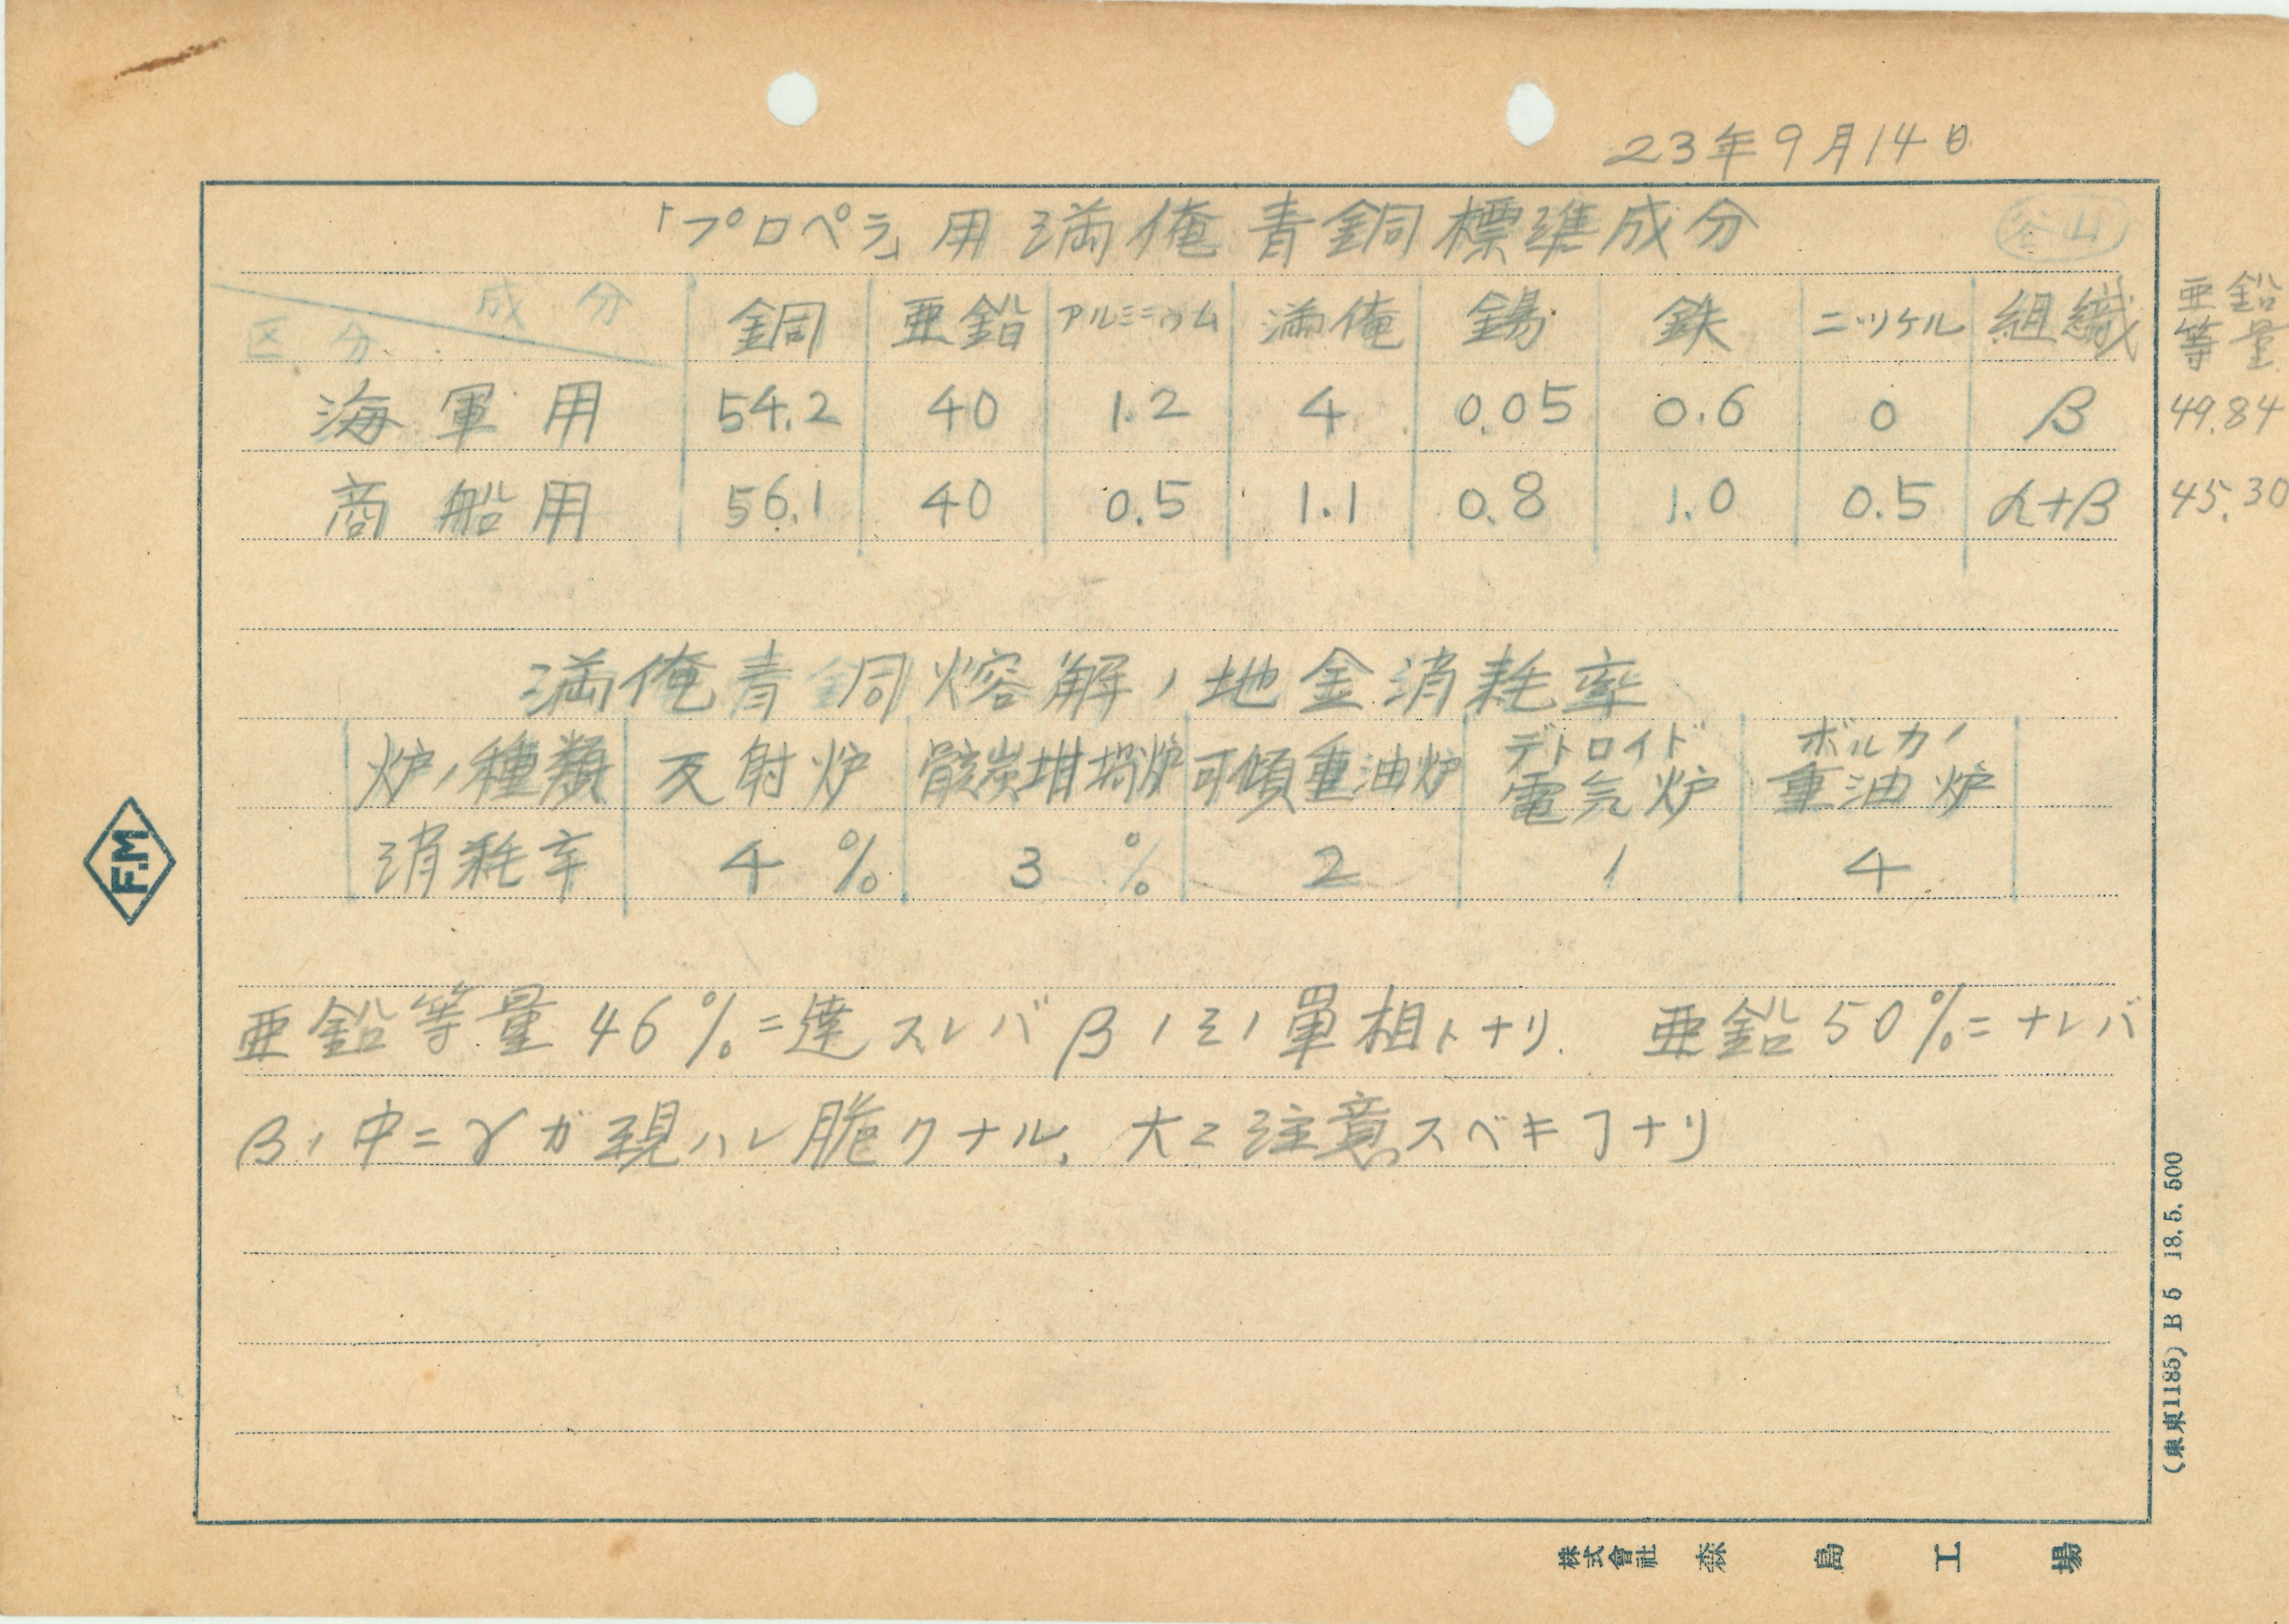 23年9月14日
「プロペラ」用満俺青銅標準成分
谷山
成分
区分
銅 亜鉛 アルミニウム 満俺 錫 鉄 ニッケル 組織 亜鉛等量
海軍用 54.2 40 1.2 4 0.05 0.6 0 β 49.84
商船用 56.1 40 0.5 1.1 0.8 1.0 0.5 α+β 45.30
満俺青銅熔解ノ地金消耗率
炉ノ種類 反射炉 骸炭坩堝炉 可傾重油炉 デトロイド電気炉 ボルカノ重油炉
消耗率 4% 3% 2 1 4
亜鉛等量46%ニ達スレバβノミノ単相トナリ. 亜鉛50%ニナレバ
βノ中ニγガ現ハレ脆クナル、大ニ注意スベキヿナリ
F.M
(東東1185) B5 18.5.500
株式會社 森島工場